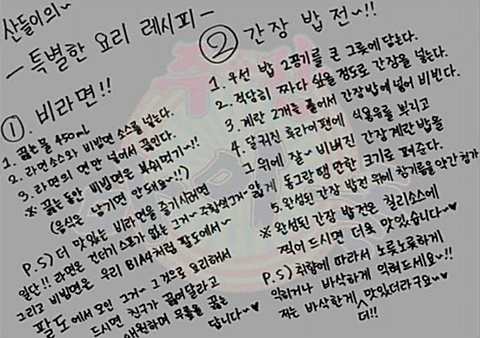 산들이의~
- 특별한 요리 레시피 -
① 비라면!!
1. 끓는물 450ml
2. 라면소스와 비빔면 소스를 넣는다.
3. 라면의 면만 넣어서 끓인다.
※ 끓는동안 비빔면은 부숴먹기~!!
(음식은 남기면 안돼요~!!)
P.S) 더 맛있는 비라면을 즐기시려면
일단!! 라면은 건더기 스프가 없는 그거~
그리고 비빔면은 우리 B1A4처럼 팔도에서~
팔도에서 모인 그거~ 그것으로 요리해서
드시면 친구가 끓여달라고
애원하며 무릎을 꿇는
답니다~♥
② 간장 밥 전~!!
1. 우선 밥 2공기를 큰 그릇에 담는다.
2. 적당히 짜다 싶을 정도로 간장을 넣는다.
3. 계란 2개를 풀어서 간장밥에 넣어 비빈다.
4. 달궈진 후라이팬에 식용유를 뿌리고
그 위에 잘~ 비벼진 간장계란밥을
얇게 동그랑땡 만한 크기로 퍼준다.
5. 완성된 간장 밥전 위에 참기름을 약간 첨가
※ 완성된 간장 밥전은 칠리소스에
찍어 드시면 더욱 맛있습니다~♥
P.S) 취향에 따라서 노릇노릇하게
익히거나 바삭하게 익혀드세요~!!
저는 바삭한게 더!! 맛있더라구요~♥